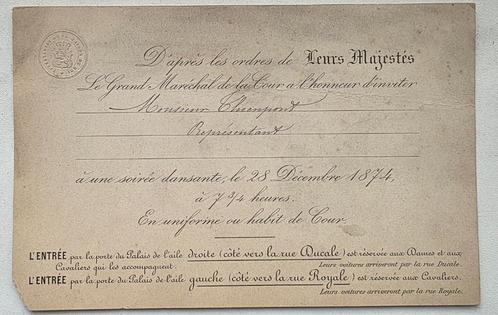 D'après les ordres de Leurs Majestés
Le Grand Maréchal de la Cour a l'honneur d'inviter
Monsieur Thienpont
Représentant
à une soirée dansante, le 28 Décembre 1874,
à 7 3/4 heures.
En uniforme ou habit de Cour.
L'ENTRÉE par la porte du Palais de l'aile droite (côté vers la rue Ducale) est réservée aux Dames et aux
Cavaliers qui les accompagnent. Leurs voitures arriveront par la rue Ducale.
L'ENTRÉE par la porte du Palais de l'aile gauche (côté vers la rue Royale) est réservée aux Cavaliers.
Leurs voitures arriveront par la rue Royale.